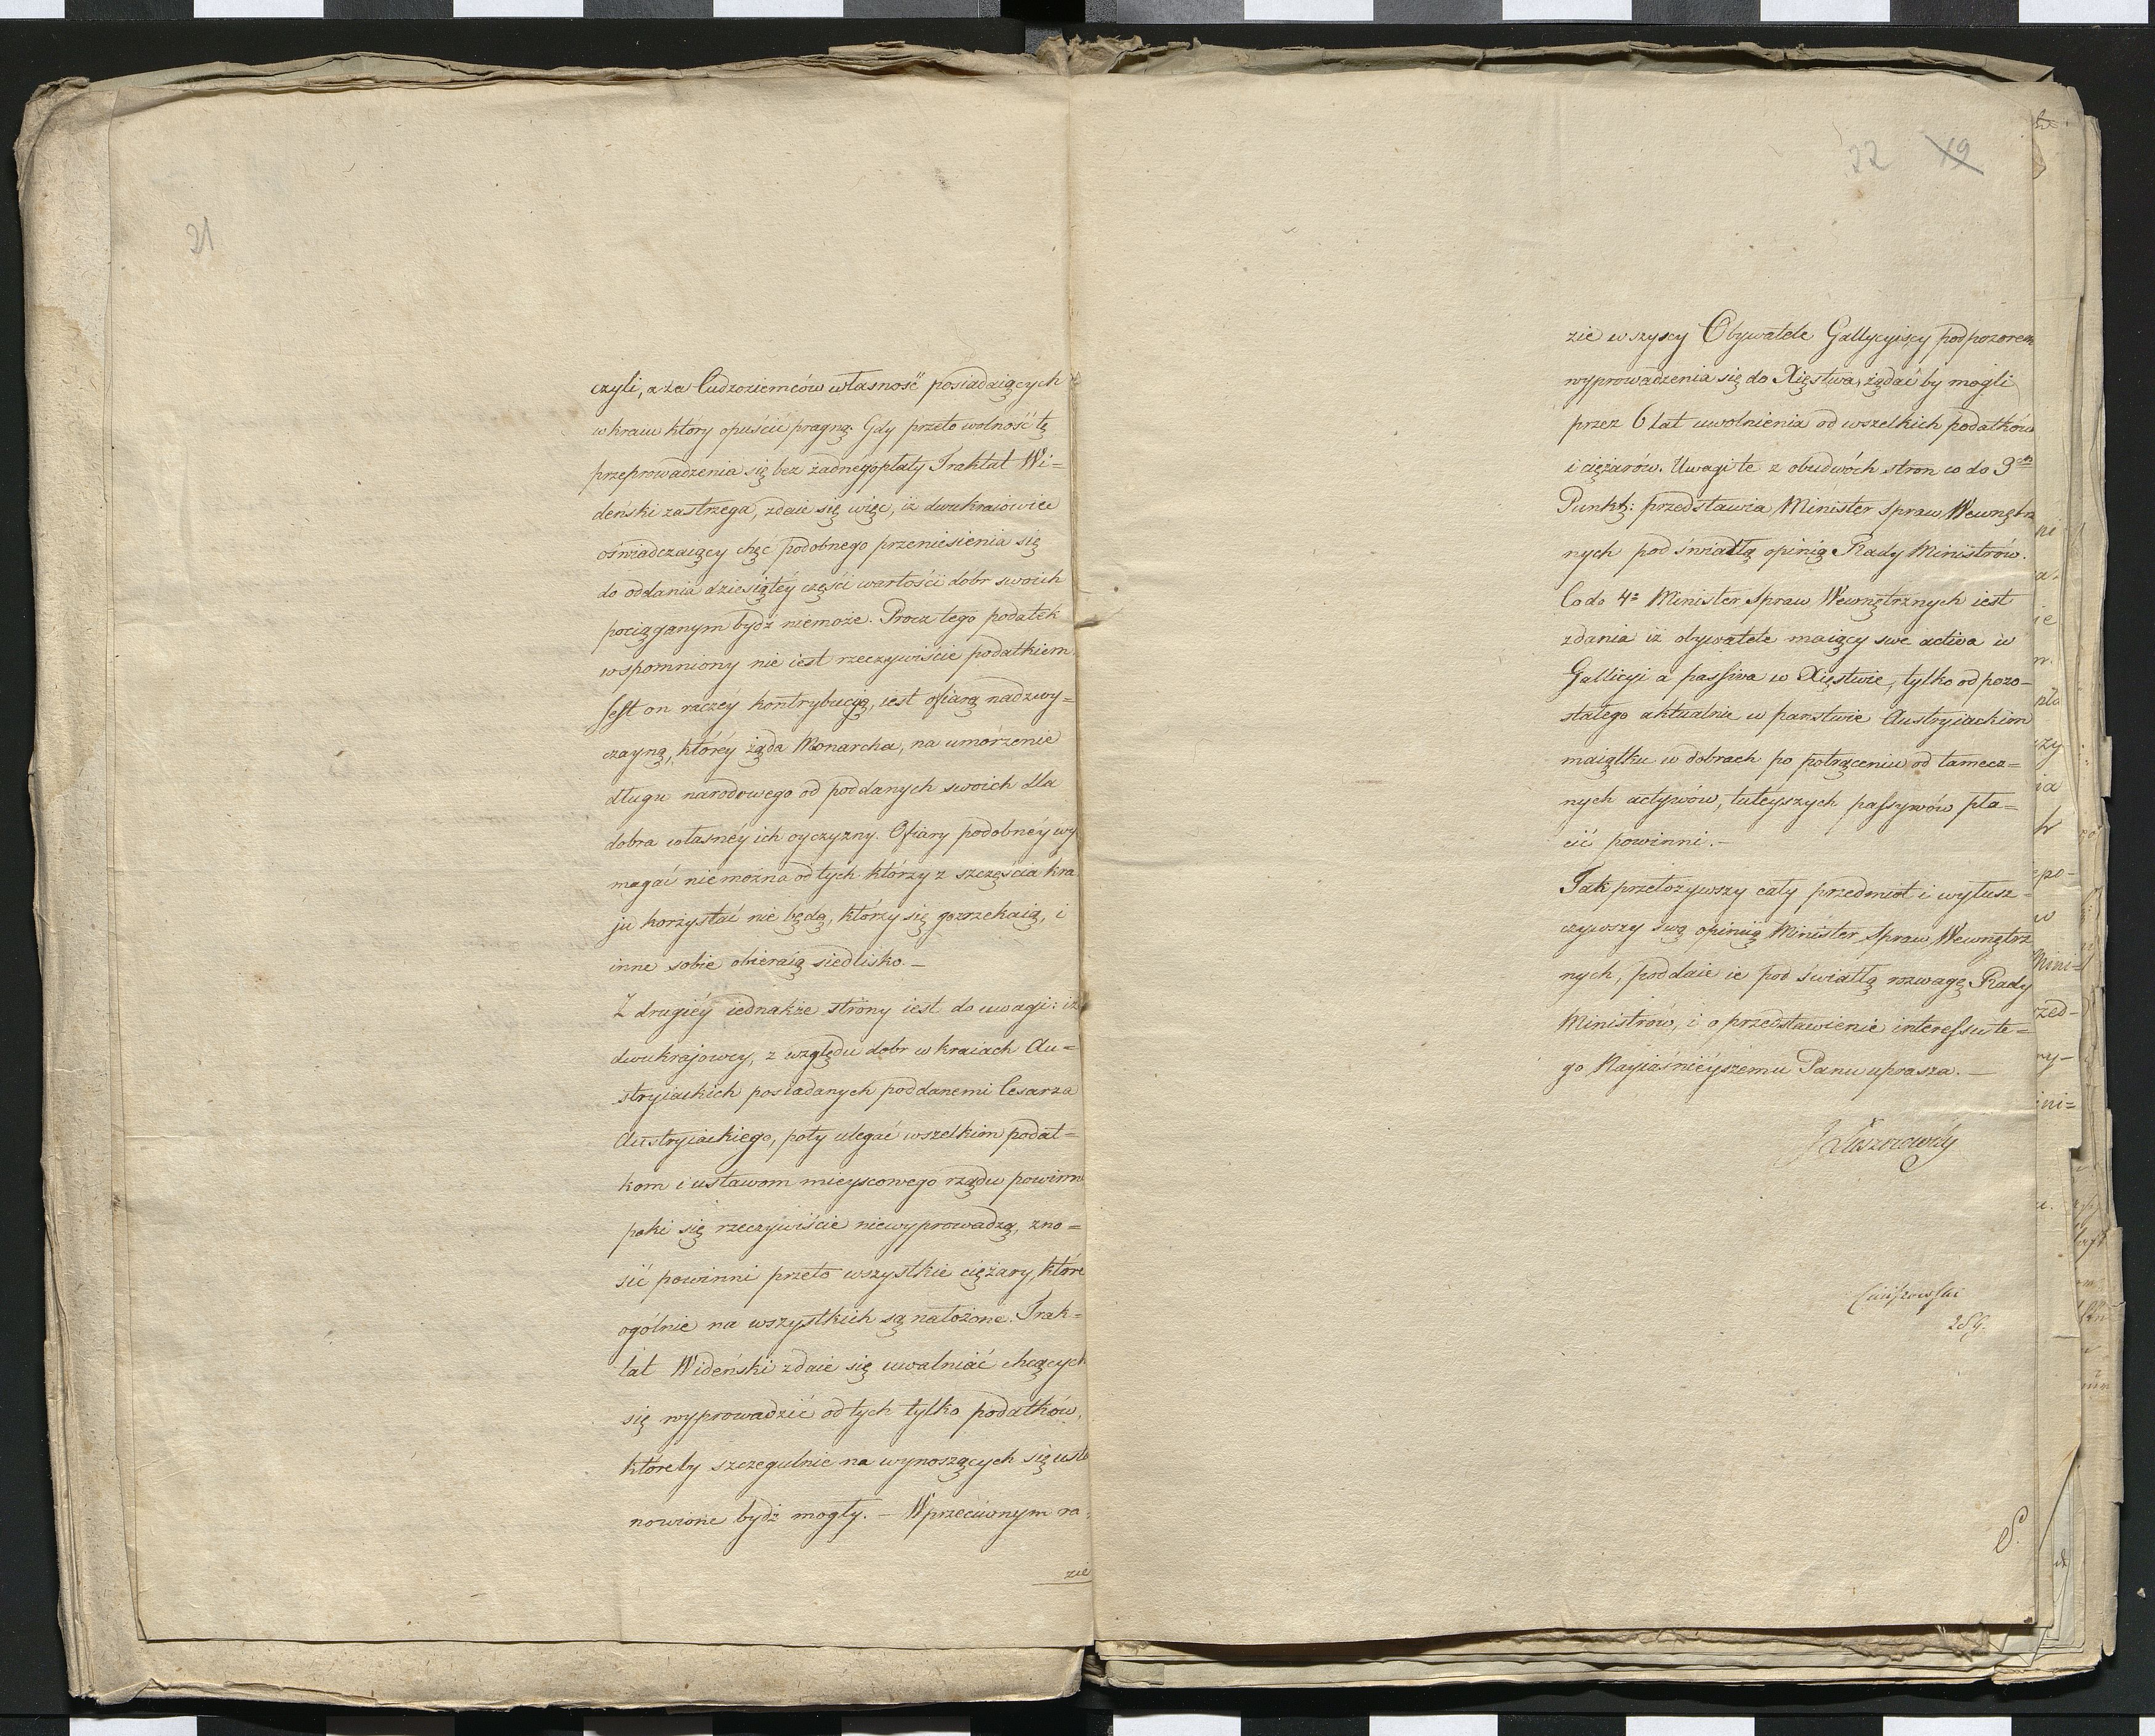 21
czyli, a za Cudzoziemców własność posiadaiących
w kraiu który opuścić pragną. Gdy przeto wolność tę
przeprowadzenia się bez żadnéy opłaty Traktat Wi=
deński zastrzega, zdaie się więc, iż dwukraiowiec
oświadczaiący chęć podobnego przeniesienia się
do oddania dziesiątéy części wartości dóbr swoich
pociąganym bydź niemoże. Procz tego podatek
wspomniony nie iest rzeczywiście podatkiem
Jest on raczéy kontrybucyą, iest ofiarą nadzwy=
czayną, któréy żąda Monarcha, na umorzenie
długu narodowego od poddanych swoich dla
dobra własnéy ich oyczyzny. Ofiary podobnéy wy
magać niemożna od tych którzy z szczęścia kra
ju korzystać nie będą, którzy się go zrzekaią, i
inne sobie obieraią siedlisko. —
Z drugiéy iednakże strony iest do uwagi: iż
dwukrajowcy, z względu dobr w kraiach Au=
stryiackich posiadanych poddanemi Cesarza
Austryiackiego, poty ulegać wszelkim podat=
kom i ustawom mieyscowego rządu powinni
poki się rzeczywiście niewyprowadzą, zno=
sić powinni przeto wszystkie ciężary, które
ogólnie na wszystkich są nałożone. Trak=
tat Wideński zdaie się uwalniać chcących
się wyprowadzić od tych tylko podatków,
któreby szczegulnie na wynoszących się usta
nowione bydź mogły. — W przeciwnym ra
zie
22 19
zie wszyscy Obywatele Gallycyiscy pod pozorem
wyprowadzenia się do Xięstwa, żądać by mogli
przez 6 lat uwolnienia od wszelkich podatków
i ciężarów. Uwagi te z obudwóch stron co do 3
Punktu: przedstawia Minister Spraw Wewnętrz
nych pod światłą opinię Rady Ministrów.
Co do 4º Minister Spraw Wewnętrznych iest
zdania iż obywatele maiący swe activa w
Gallicyi a passiva w Xięstwie, tylko od pozo-
stałego aktualnie w panstwie Austryiackim
maiątku w dobrach po potrąceniu od tamecz=
nych actywów, tuteyszych passywów pła=
cić powinni. —
Tak przełożywszy cały przedmiot i wyłusz=
czywszy swą opinią Minister Spraw Wewnętrz
nych, poddaie ie pod światłą rozwagę Rady
Ministrów, i o przedstawienie interessu te=
go Nayiaśniéyszemu Panu uprasza. —
J Łuszczewski